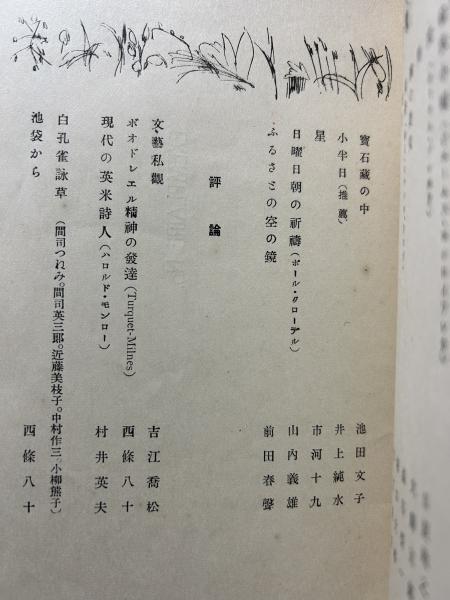 寶石藏の中 池田文子
小半日(推薦) 井上純水
星 市河十九
日曜日朝の祈禱(ポール・クローデル) 山內義雄
ふるさとの空の鏡 前田春聲
評論
文藝私觀 吉江喬松
ボオドレエル精神の發達(Turquet-Milnes) 西條八十
現代の英米詩人(ハロルド・モンロー) 村井英夫
白孔雀詠草(間司つれみ。間司英三郞。近藤美枝子。中村作三。小柳熊子)
池袋から 西條八十